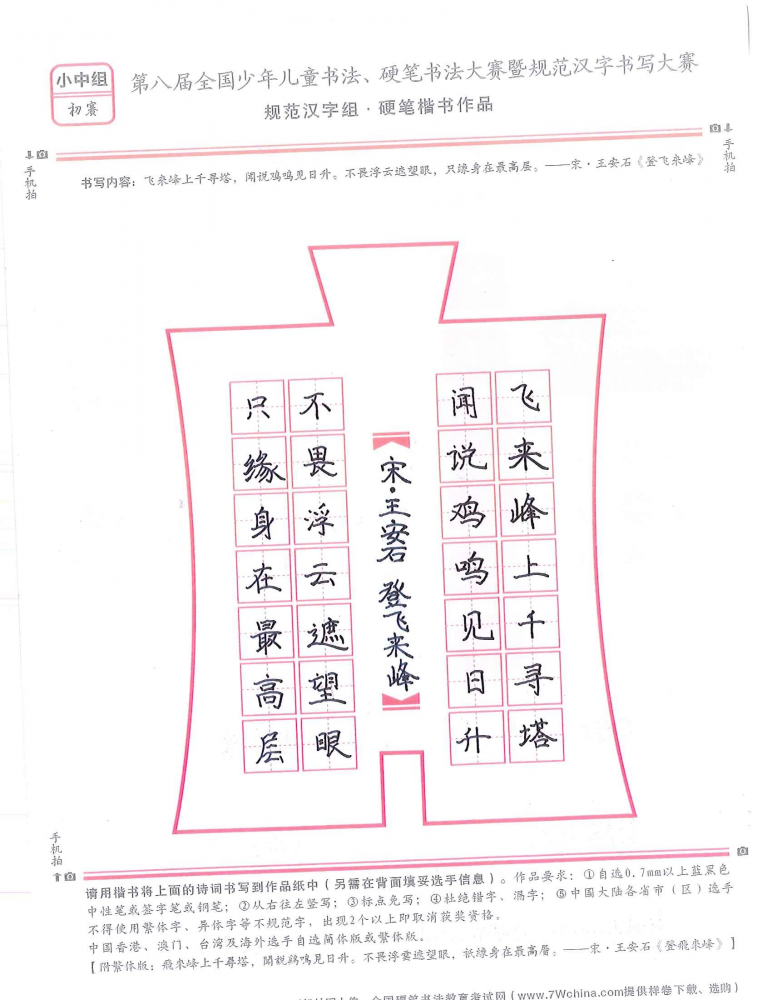 小中组
初赛
第八届全国少年儿童书法、硬笔书法大赛暨规范汉字书写大赛
规范汉字组·硬笔楷书作品
手机拍
手机拍
书写内容：飞来峰上千寻塔，闻说鸡鸣见日升。不畏浮云遮望眼，只缘身在最高层。——宋·王安石《登飞来峰》
飞来峰上千寻塔
闻说鸡鸣见日升
宋·王安石 登飞来峰
不畏浮云遮望眼
只缘身在最高层
手机拍
请用楷书将上面的诗词书写到作品纸中（另需在背面填妥选手信息）。作品要求：①自选0.7mm以上蓝黑色
中性笔或签字笔或钢笔；②从右往左竖写；③标点免写；④杜绝错字、漏字；⑤中国大陆各省市（区）选手
不得使用繁体字、异体字等不规范字，出现2个以上即取消获奖资格。
中国香港、澳门、台湾及海外选手自选简体版或繁体版。
【附繁体版：飛來峰上千尋塔，聞説鷄鳴見日升。不畏浮雲遮望眼，祇緣身在最高層。——宋·王安石《登飛來峰》】
全国硬笔书法教育考试网（www.7Wchina.com提供样卷下载、选购）